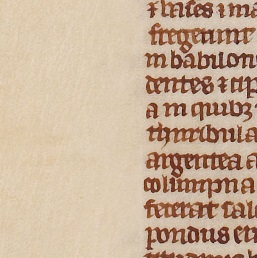 ⁊ bases ⁊ ma
fregerunt
in babilon
dentes ⁊ cip
a in quibꝫ
thuribula
argentea a
columpna
fecerat sal
pondus eri